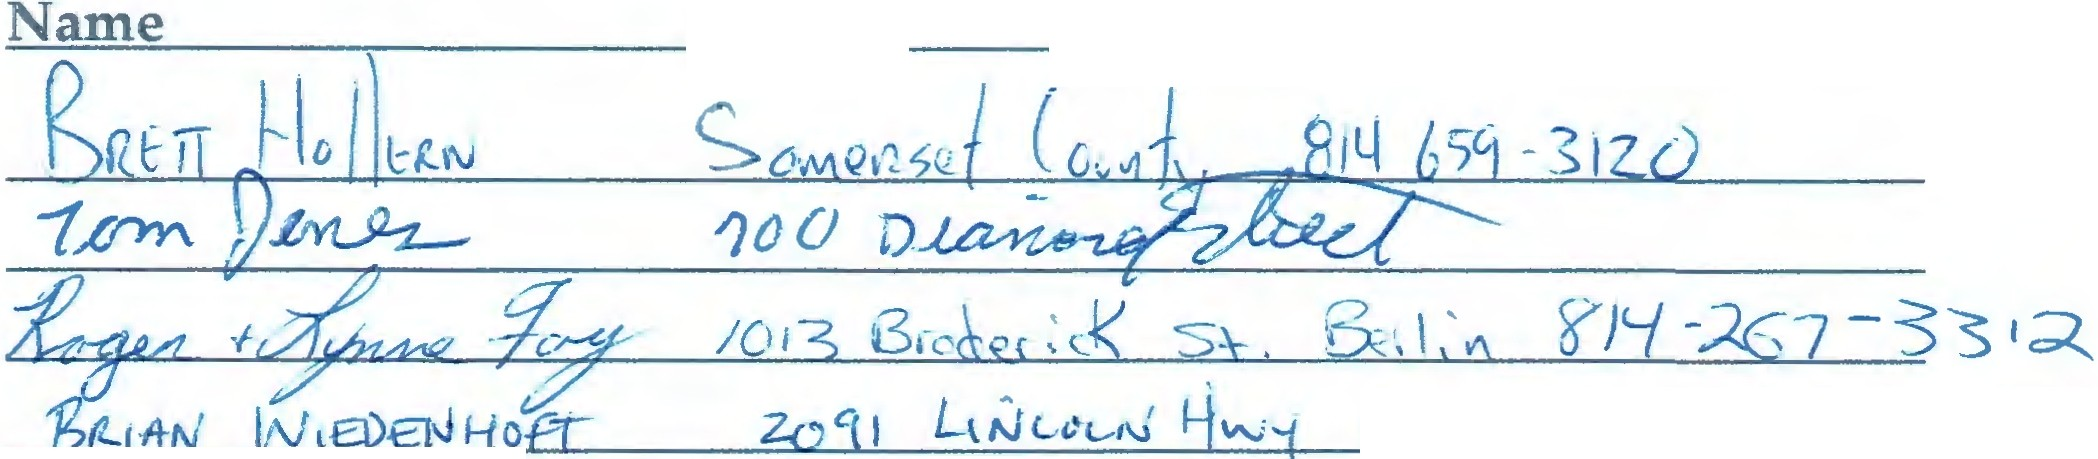 Name
BRETT HOLLERN Somerset County 814 659-3120
Tom Jones 700 Diamond Street
Roger + Lynne Fay 1013 Broderick St. Berlin 814-267-3312
BRIAN WIEDENHOFT 2091 LINCOLN HWY